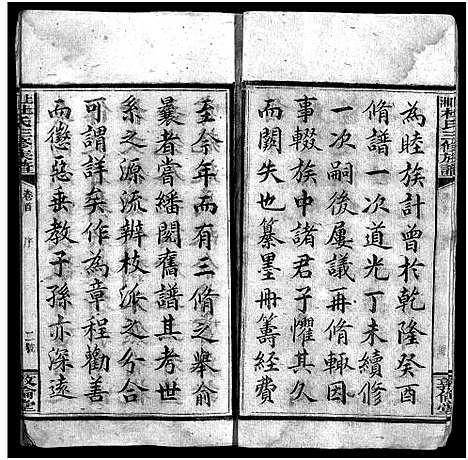 為睦族計曾於乾隆癸酉
脩譜一次道光丁未續修
一次嗣後屢議再脩輒因
事輟族中諸君子懼其久
而闕失也纂墨冊籌經費
至今年而有三脩之舉俞
曩者嘗繙閱舊譜其考世
系之源流辨枝派之分合
可謂詳矣作為章程勸善
而懲惡垂教子孫亦深遠
卷首
序
二